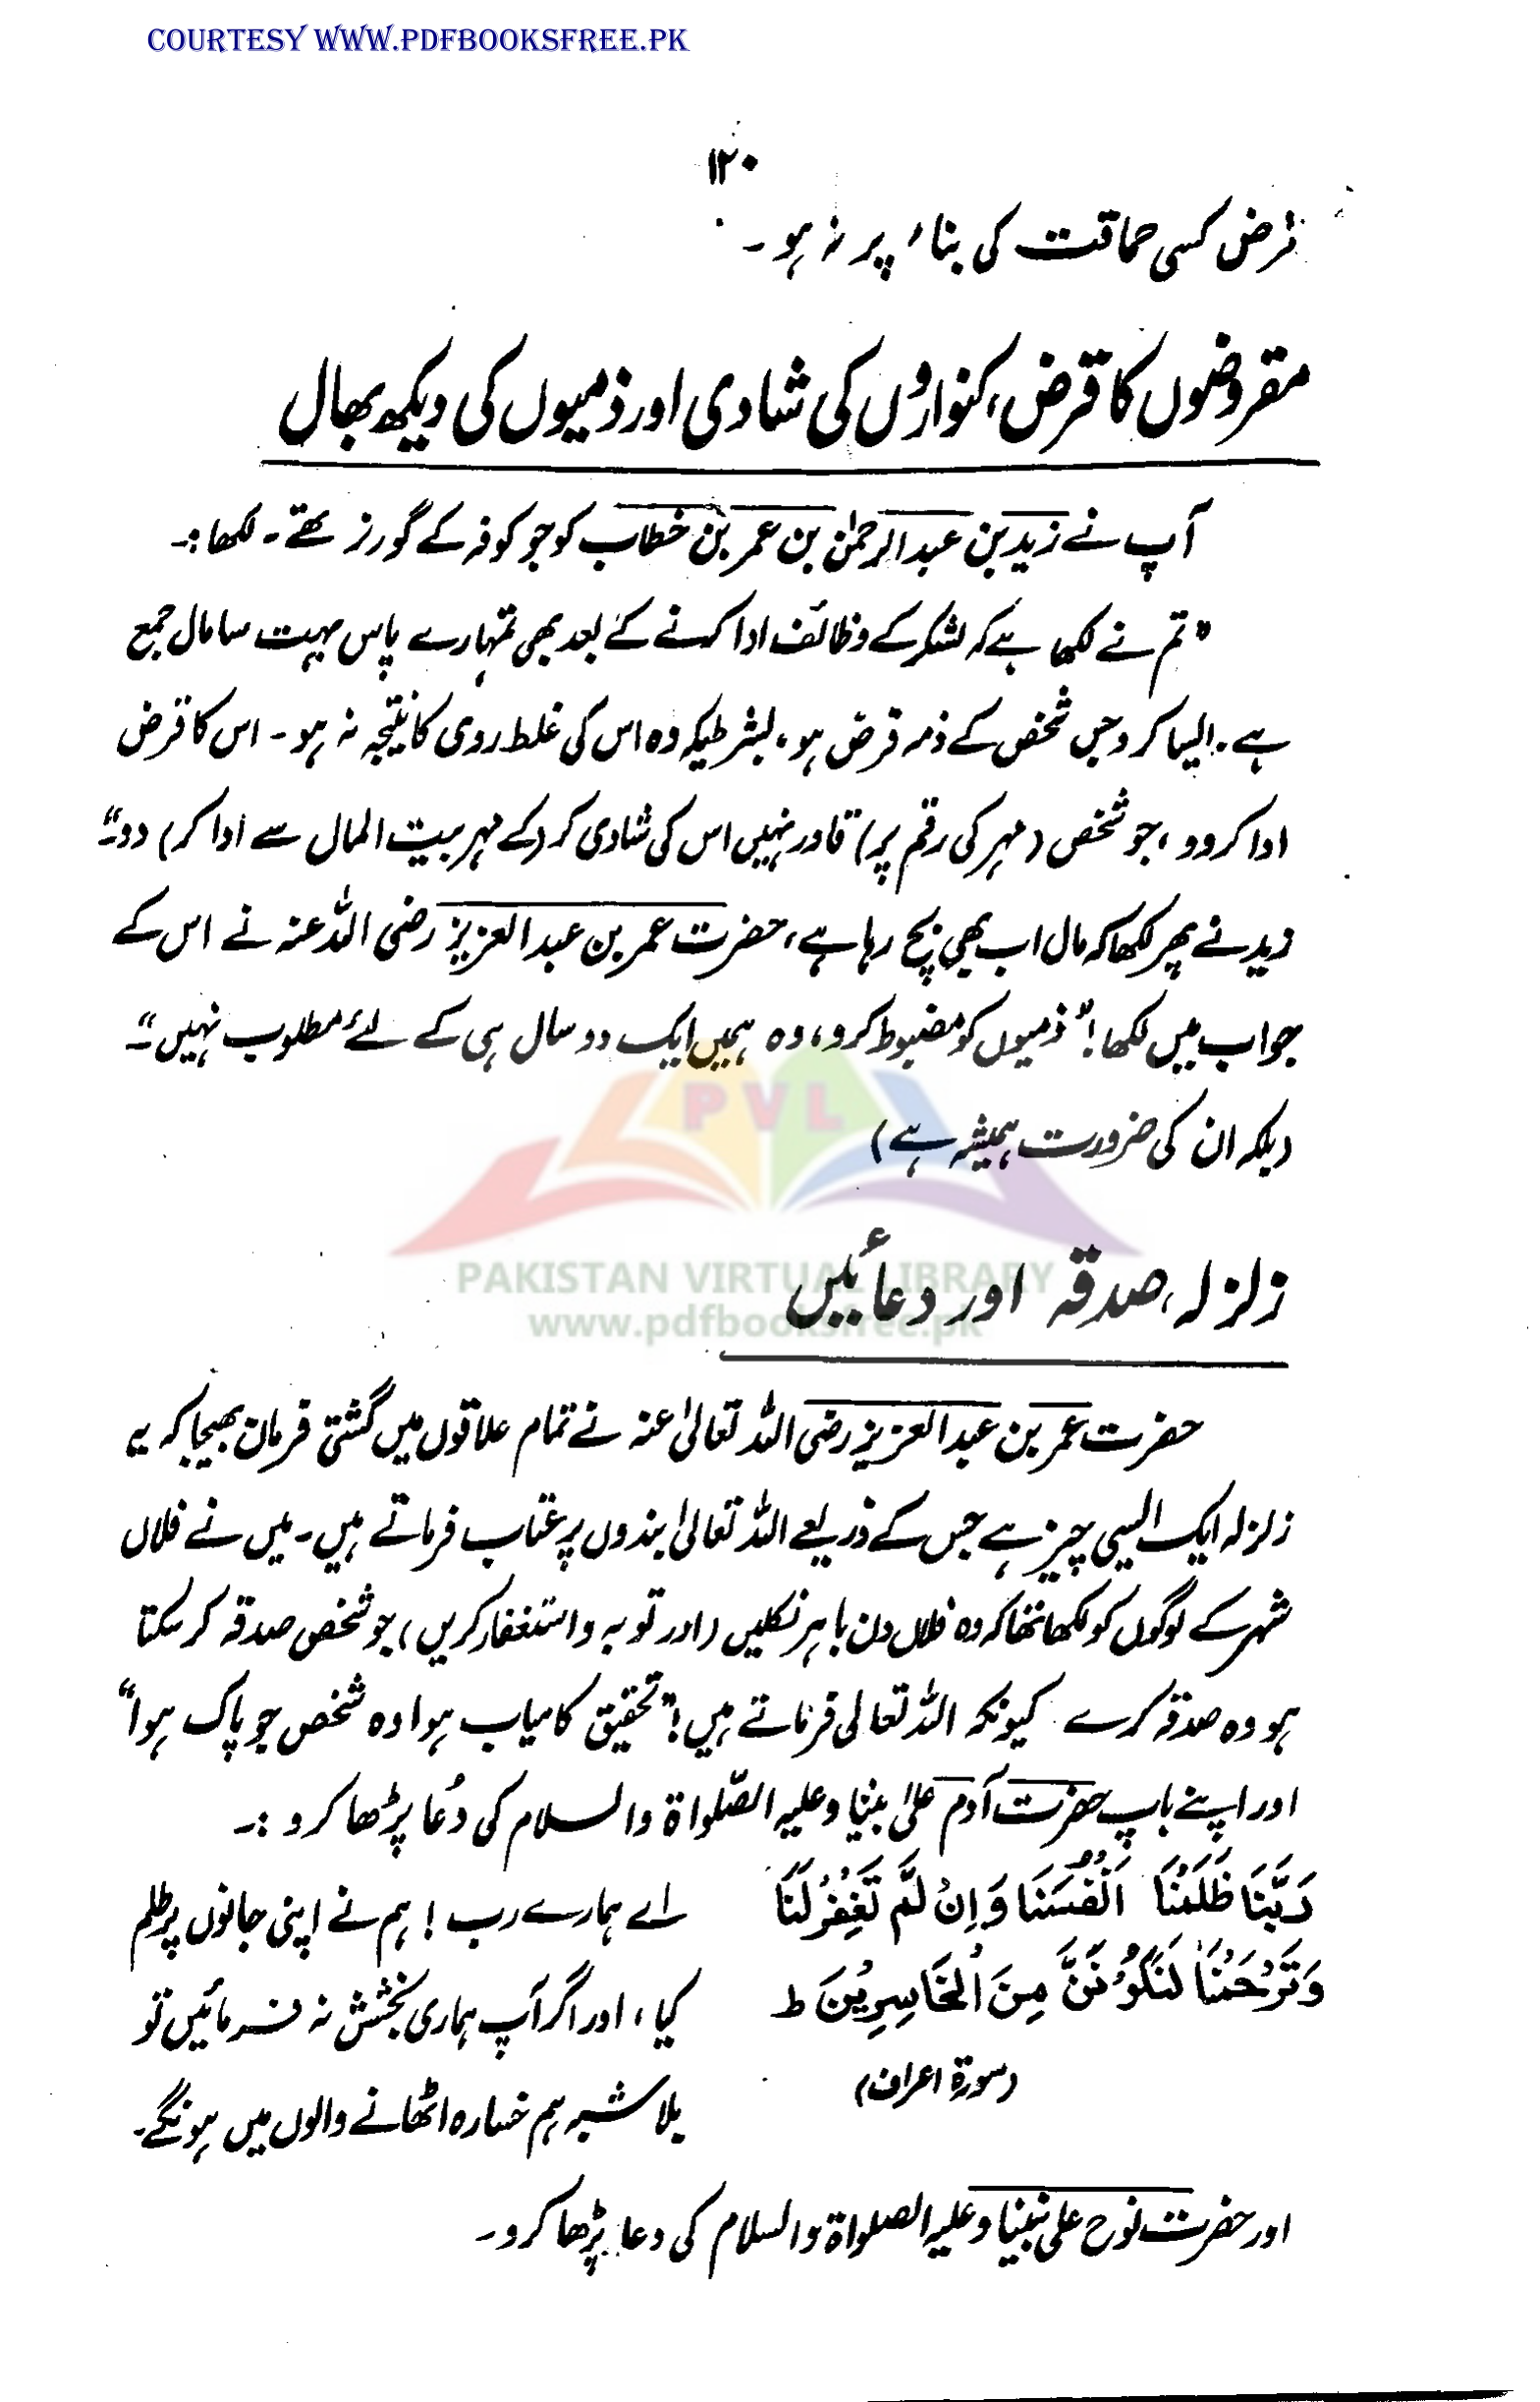 COURTESY WWW.PDFBOOKSFREE.PK
۱۲۰
قرض کسی حماقت کی بناء پر نہ ہو۔
مقروضوں کا قرض، کنواروں کی شادی اور ذمیوں کی دیکھ بھال
آپ نے زید بن عبدالرحمٰن بن عمر بن خطاب کو جو کوفہ کے گورنر تھے۔ لکھا :۔
"تم نے لکھا ہے کہ لشکر کے وظائف ادا کرنے کے بعد بھی تمہارے پاس بہت سا مال جمع
ہے۔ ایسا کرو جس شخص کے ذمہ قرض ہو، بشرطیکہ وہ اس کی غلط روی کا نتیجہ نہ ہو۔ اس کا قرض
ادا کردو، جو شخص (مہر کی رقم پر) قادر نہیں اس کی شادی کر (کے مہر بیت المال سے ادا کر) دو۔"
زید نے پھر لکھا کہ مال اب بھی بچ رہا ہے، حضرت عمر بن عبدالعزیز رضی اللہ عنہ نے اس کے
جواب میں لکھا! "ذمیوں کو مضبوط کرو، وہ ہمیں ایک دو سال ہی کے لئے مطلوب نہیں"۔
(بلکہ ان کی ضرورت ہمیشہ ہے)
PVL
PAKISTAN VIRTUAL LIBRARY
www.pdfbooksfree.pk
زلزلہ، صدقہ اور دعائیں
حضرت عمر بن عبدالعزیز رضی اللہ تعالیٰ عنہ نے تمام علاقوں میں گشتی فرمان بھیجا کہ یہ
زلزلہ ایک ایسی چیز ہے جس کے ذریعے اللہ تعالیٰ بندوں پر عتاب فرماتے ہیں۔ میں نے فلاں
شہر کے لوگوں کو لکھا تھا کہ وہ فلاں دن باہر نکلیں (اور توبہ و استغفار کریں) جو شخص صدقہ کر سکتا
ہو وہ صدقہ کرے کیونکہ اللہ تعالی فرماتے ہیں! "تحقیق کامیاب ہوا وہ شخص جو پاک ہوا"
اور اپنے باپ حضرت آدم علیٰ نبینا وعلیہ الصّلواۃ والسلام کی دُعا پڑھا کرو :۔
رَبَّنَا ظَلَمْنَا اَنْفُسَنَا وَاِنْ لَّمْ تَغْفِرْلَنَا
وَتَرْحَمْنَا لَنَكُوْنَنَّ مِنَ الْخَاسِرِيْنَ ط
(سورۃ اعراف)
اے ہمارے رب ! ہم نے اپنی جانوں پر ظلم
کیا، اور اگر آپ ہماری بخشش نہ فرمائیں تو
بلاشبہ ہم خسارہ اٹھانے والوں میں ہونگے۔
اور حضرت نوح علی نبینا وعلیہ الصلواۃ والسلام کی دعا پڑھا کرو۔